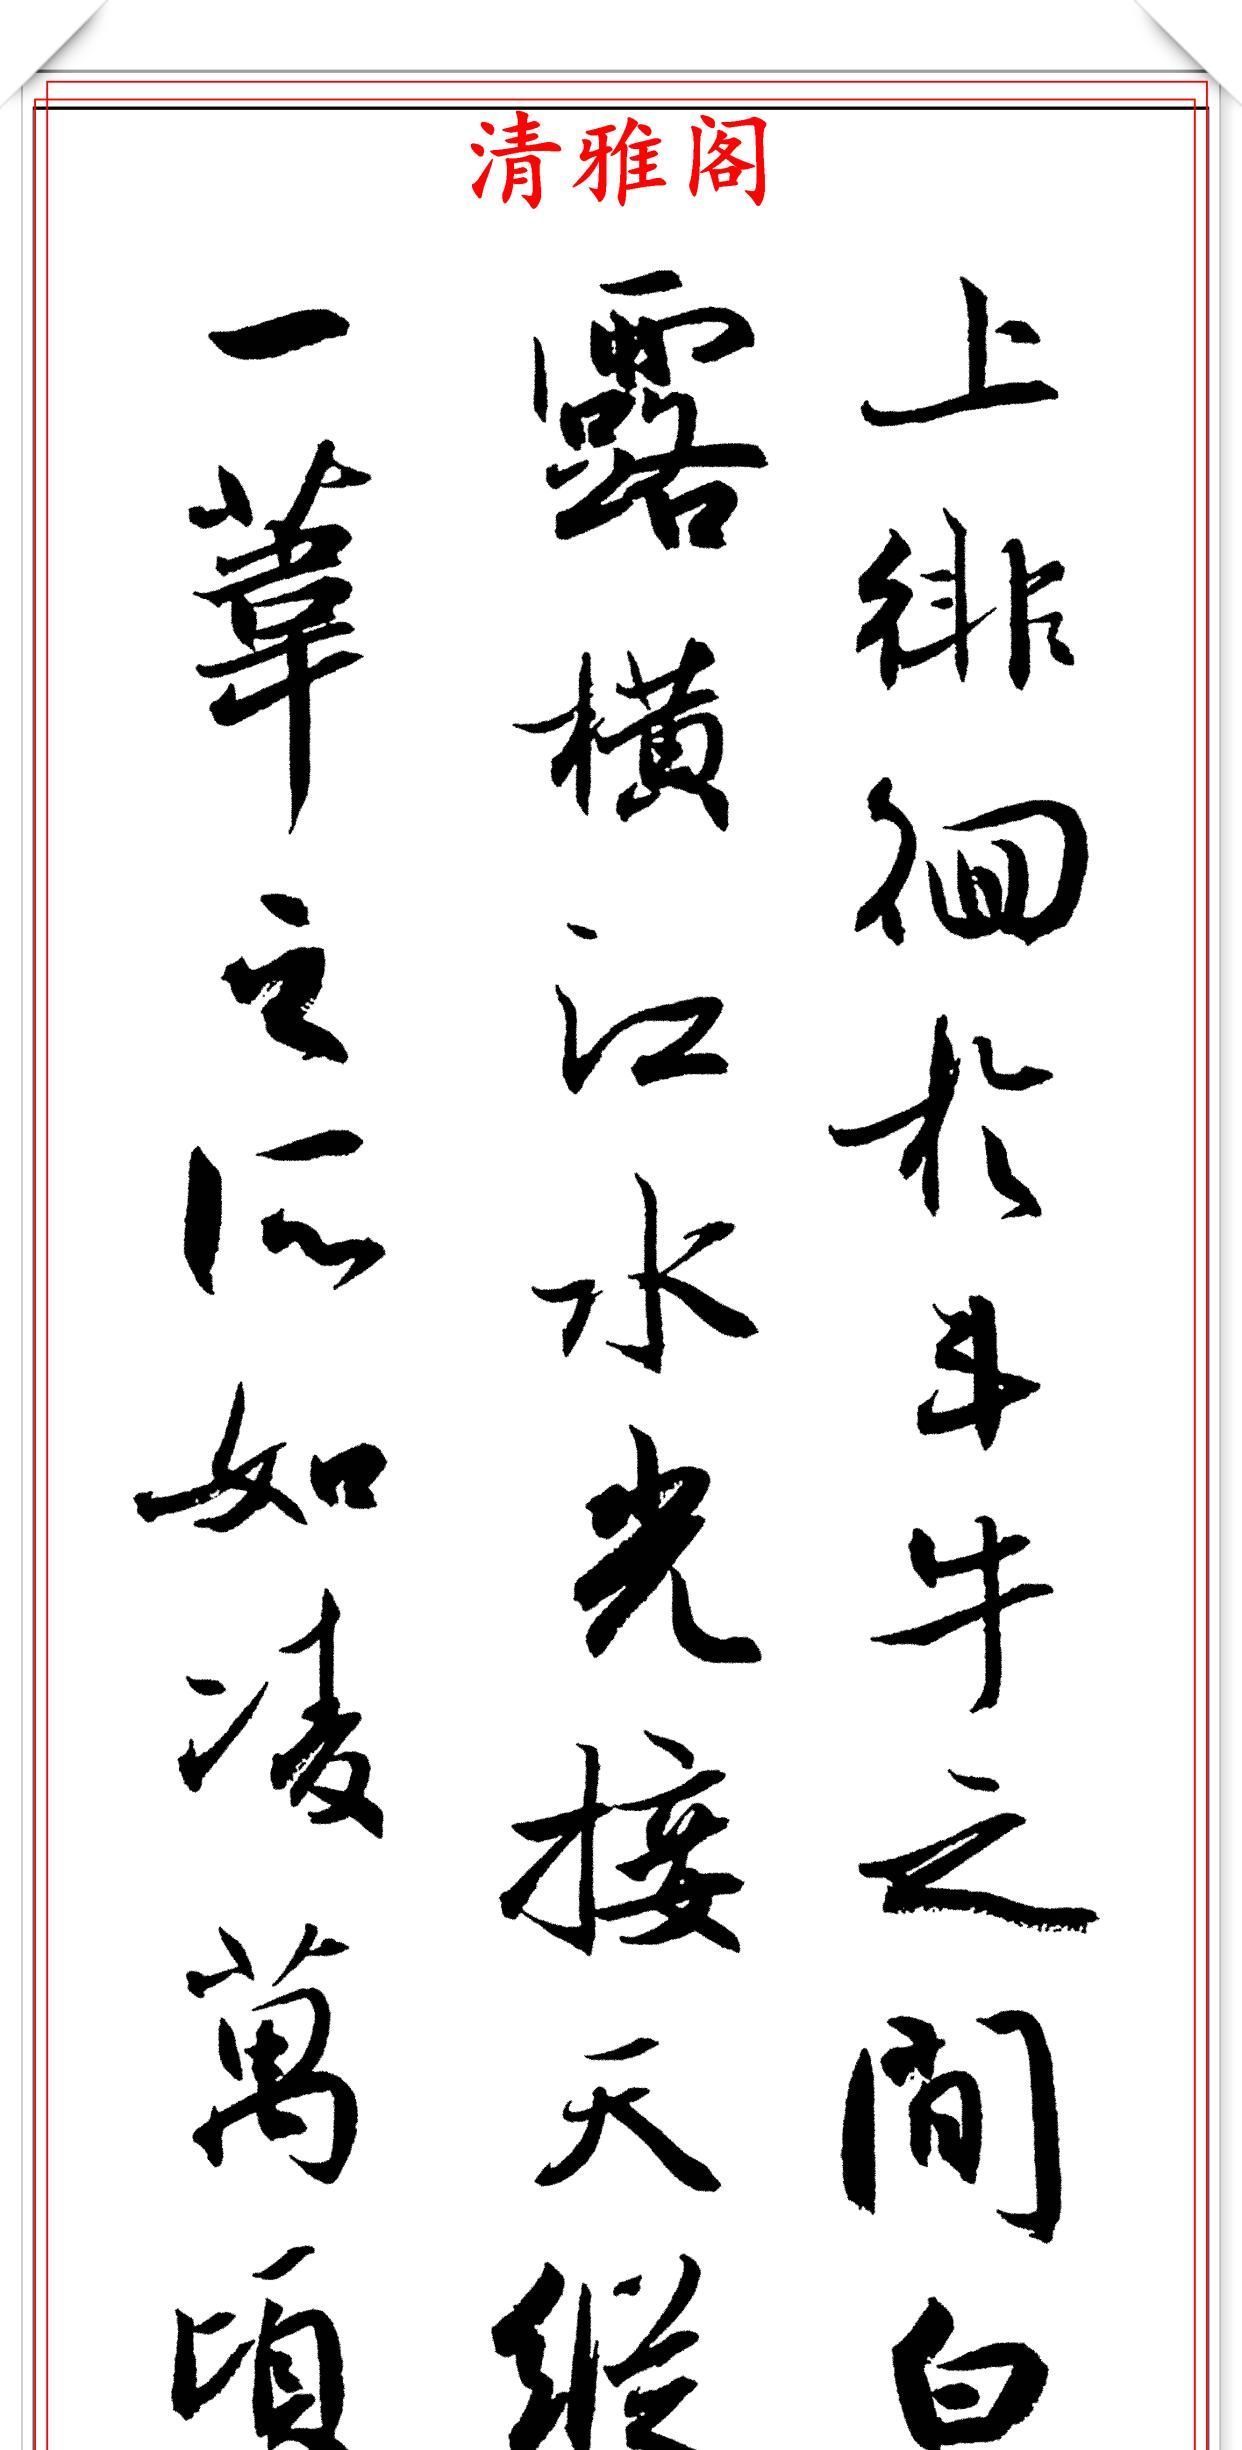 清雅阁
上徘徊於斗牛之間白
露橫江水光接天縱
一葦之所如凌萬頃